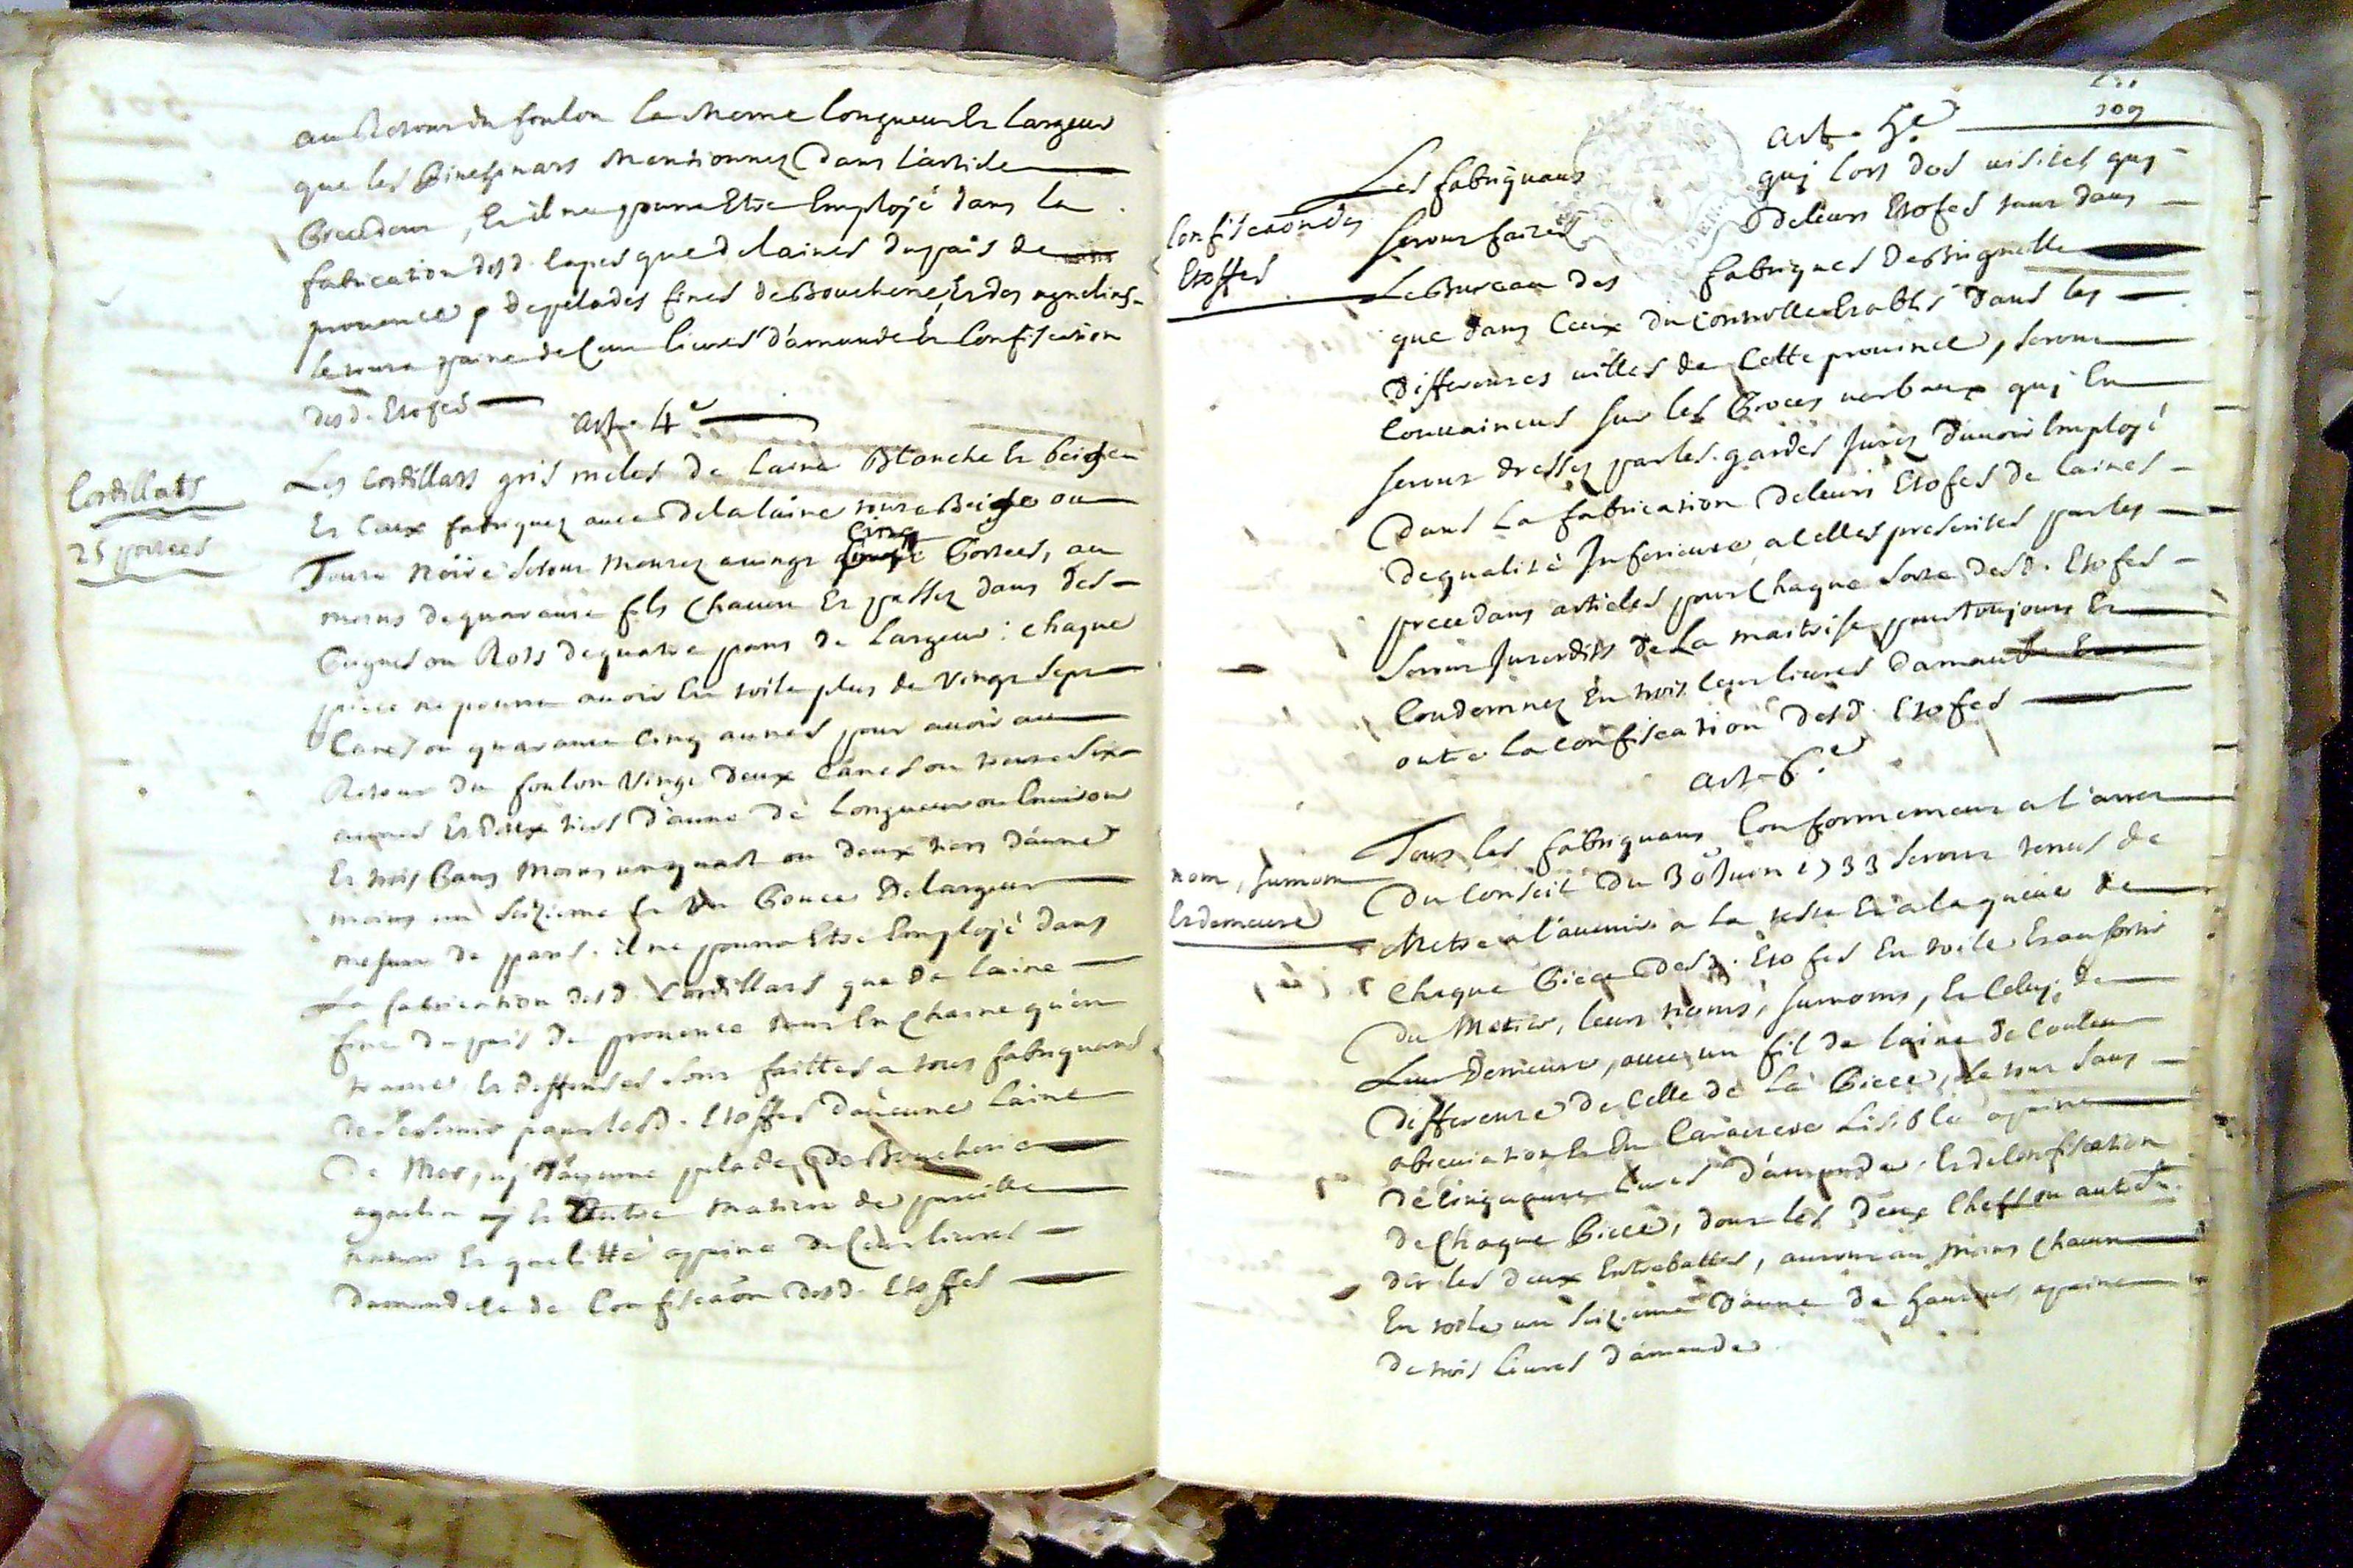 au Retour du foulon la meme longueur Et largeur
que les Pinchinats mentionnez dans l'article
Precedent, Et il ne pourra Etre Employé dans la
fabrication desd. capes que de laines du païs de
provence, de pelades fines de Boucherie, Et des agnelins
le tout a paine de Cent livres d'amande Et Confiscation
desd. Etofes
art. 4e
Cordillats
25 portées
Les Cordillats gris melés de laine Blanche Et beige
Et Ceux fabriquez avec de la laine toute Beige ou
Toute Noire Seront montez a vingt Cinq Portées, au
moins de quarante fils Chacune Et passez dans des
Peignes ou Rots de quatre pans de largeur: chaque
piece ne pourra avoir En toile plus de vingt Sept
Canes ou quarante Cinq aunes pour avoir au
Retour du foulon Vingt Deux Canes ou trente Six
aunes Et deux tiers D'aune de longueur ou Environ
Et trois Pans moins un quart ou deux tiers D'aune
moins un Seizieme Et un Pouce De largeur
mesure de paris. il ne pourra Etre Employé dans
La fabrication desd. Cordillats que de laine
fine du païs de provence tant En Chaine qu'en
trame Et deffenses Sont faittes a tous fabriquans
de Se Servir pour lesd. Etoffes d'aucune laine
De Mer, nj d'aucune pelade de Boucherie
agnelin nj autre matiere de pareille
nature Et qualitté a paine de Cent livres
Damande Et de Confiscaôn desd. Etoffes
309
art. 5e
Confiscaôn des
Etoffes
Les fabriquans quj lors des visites quj
Seront faites de leurs Etofes tant dans
Le Bureau des fabriques De Brignolle
que dans Ceux du Controlle Etablis dans les
Differentes villes de Cette province, Seront
Convaincus Sur les Proces verbaux quj En
Seront dressez par les gardes Jurez D'avoir Employé
Dans la fabrication de leurs Etofes de laines
de qualité Inferieure a Celles prescrites par les
precedans articles pour Chaque Sorte desd. Etofes
Seront Interdits de la maitrise pour toujours Et
Condemnez En trois Cens livres Damande Et
outre la confiscation desd. Etofes
art. 6e
nom, Surnom
Et demeure
Tous les fabriquans Conformement a l'arret
Du Conseil Du 30 Juin 1733 Seront tenus de
Mettre a l'avenir a la teste Et a la queüe de
Chaque Piece desd. Etofes En toile Et au Sortir
Du Metier, leurs noms, Surnoms, Et Celuj de
Leur Demeure, avec un fil de laine de Couleur
Differente de Celle de la Piece, le tout Sans
abreviation Et En Caractere Lisible a paine
De Cinquante livres D'amande Et de Confiscation
de Chaque Piece, dont les deux Chefs ou autrem.
dit les deux Entrebattes, auront au moins Chacun
En toile un Seizieme D'aune de hauteur a paine
de trois livres d'amande